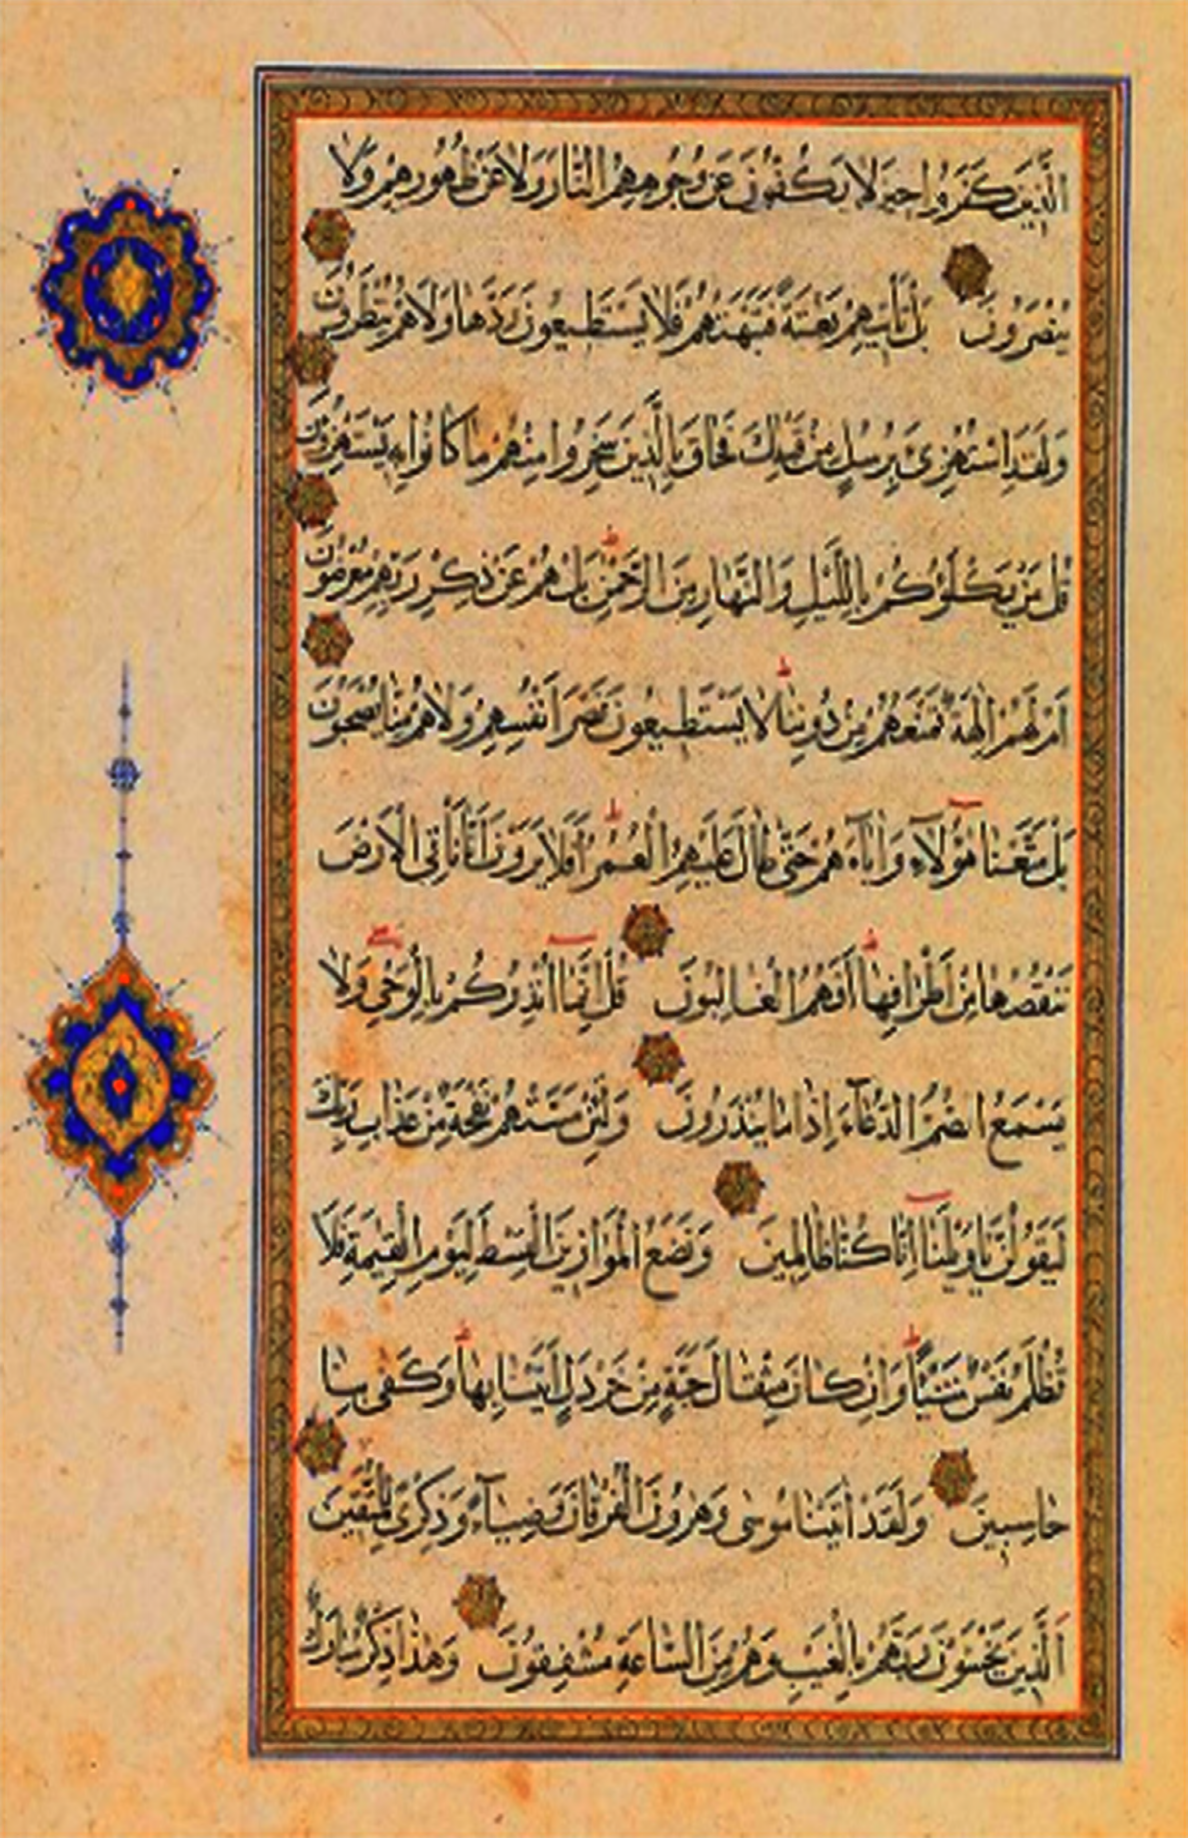 الَّذِينَ كَفَرُوا حِينَ لَا يَكُفُّونَ عَنْ وُجُوهِهِمُ النَّارَ وَلَا عَنْ ظُهُورِهِمْ وَلَا
يُنْصَرُونَ بَلْ تَأْتِيهِمْ بَغْتَةً فَتَبْهَتُهُمْ فَلَا يَسْتَطِيعُونَ رَدَّهَا وَلَا هُمْ يُنْظَرُونَ
وَلَقَدِ اسْتُهْزِئَ بِرُسُلٍ مِنْ قَبْلِكَ فَحَاقَ بِالَّذِينَ سَخِرُوا مِنْهُمْ مَا كَانُوا بِهِ يَسْتَهْزِؤُنَ
قُلْ مَنْ يَكْلَؤُكُمْ بِاللَّيْلِ وَالنَّهَارِ مِنَ الرَّحْمٰنِ بَلْ هُمْ عَنْ ذِكْرِ رَبِّهِمْ مُعْرِضُونَ
اَمْ لَهُمْ اٰلِهَةٌ تَمْنَعُهُمْ مِنْ دُونِنَا لَا يَسْتَطِيعُونَ نَصْرَ اَنْفُسِهِمْ وَلَا هُمْ مِنَّا يُصْحَبُونَ
بَلْ مَتَّعْنَا هٰؤُلَاءِ وَاٰبَاءَهُمْ حَتّٰى طَالَ عَلَيْهِمُ الْعُمُرُ اَفَلَا يَرَوْنَ اَنَّا نَأْتِي الْاَرْضَ
نَنْقُصُهَا مِنْ اَطْرَافِهَا اَفَهُمُ الْغَالِبُونَ قُلْ اِنَّمَا اُنْذِرُكُمْ بِالْوَحْيِ وَلَا
يَسْمَعُ الصُّمُّ الدُّعَاءَ اِذَا مَا يُنْذَرُونَ وَلَئِنْ مَسَّتْهُمْ نَفْحَةٌ مِنْ عَذَابِ رَبِّكَ
لَيَقُولُنَّ يَاوَيْلَنَا اِنَّا كُنَّا ظَالِمِينَ وَنَضَعُ الْمَوَازِينَ الْقِسْطَ لِيَوْمِ الْقِيٰمَةِ فَلَا
تُظْلَمُ نَفْسٌ شَيْئًا وَاِنْ كَانَ مِثْقَالَ حَبَّةٍ مِنْ خَرْدَلٍ اَتَيْنَا بِهَا وَكَفٰى بِنَا
حَاسِبِينَ وَلَقَدْ اٰتَيْنَا مُوسٰى وَهٰرُونَ الْفُرْقَانَ وَضِيَاءً وَذِكْرًى لِلْمُتَّقِينَ
اَلَّذِينَ يَخْشَوْنَ رَبَّهُمْ بِالْغَيْبِ وَهُمْ مِنَ السَّاعَةِ مُشْفِقُونَ وَهٰذَا ذِكْرٌ مُبَارَكٌ